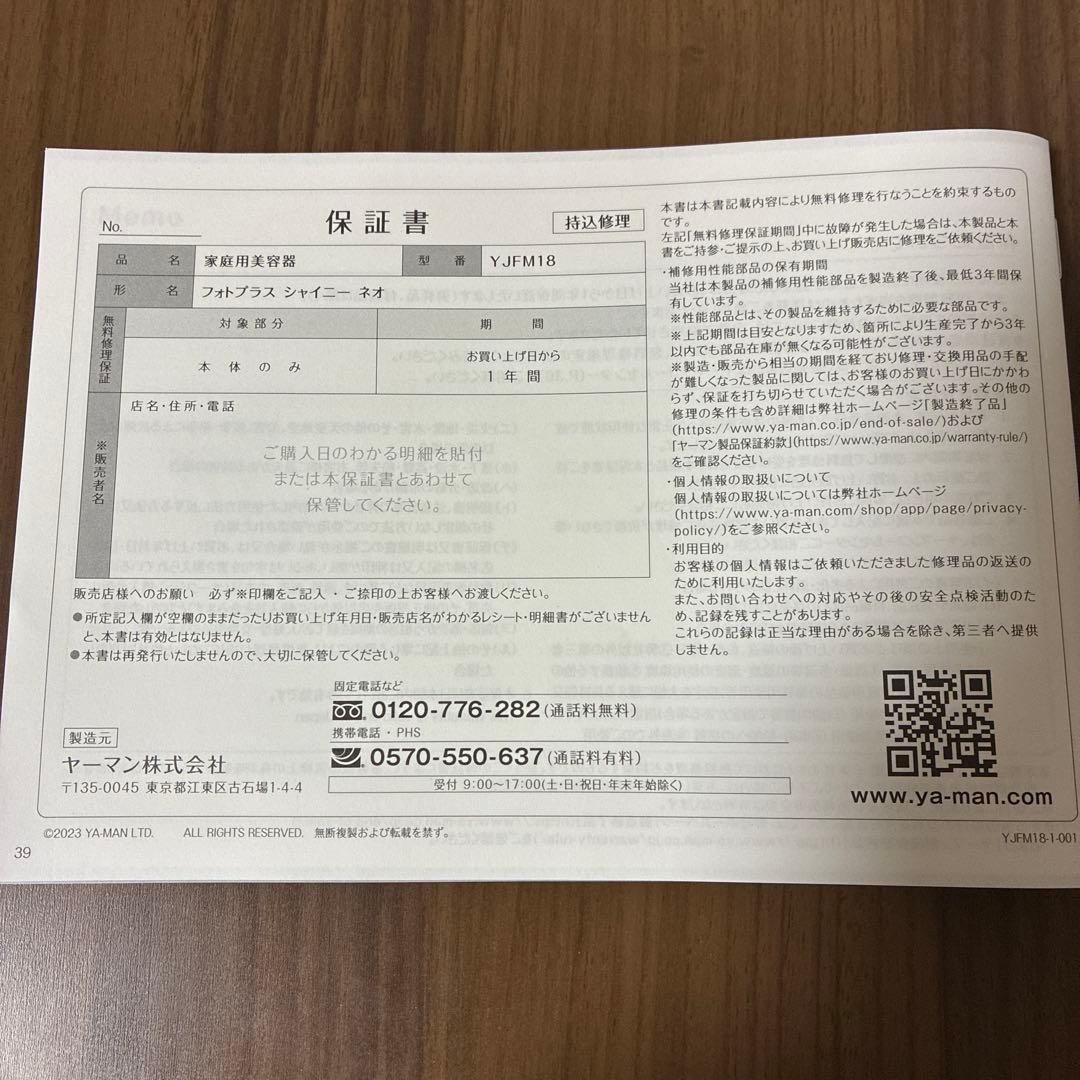 No.
保証書
持込修理
品名 家庭用美容器 型番 YJFM18
形名 フォトプラス シャイニー ネオ
無料修理保証
対象部分 期間
本体のみ お買い上げ日から
1年間
※販売者名
店名・住所・電話
ご購入日のわかる明細を貼付
または本保証書とあわせて
保管してください。
販売店様へのお願い 必ず※印欄をご記入・ご捺印の上お客様へお渡しください。
●所定記入欄が空欄のままだったりお買い上げ年月日・販売店名がわかるレシート・明細書がございません
と、本書は有効とはなりません。
●本書は再発行いたしませんので、大切に保管してください。
本書は本書記載内容により無料修理を行なうことを約束するもの
です。
左記「無料修理保証期間」中に故障が発生した場合は、本製品と本
書をご持参・ご提示の上、お買い上げ販売店に修理をご依頼ください。
・補修用性能部品の保有期間
当社は本製品の補修用性能部品を製造終了後、最低3年間保
有しています。
※性能部品とは、その製品を維持するために必要な部品です。
※上記期間は目安となりますため、箇所により生産完了から3年
以内でも部品在庫が無くなる可能性がございます。
※製造・販売から相当の期間を経ており修理・交換用品の手配
が難しくなった製品に関しては、お客様のお買い上げ日にかかわ
らず、保証を打ち切らせていただく場合がございます。その他の
修理の条件も含め詳細は弊社ホームページ「製造終了品」
(https://www.ya-man.co.jp/end-of-sale/)および
「ヤーマン製品保証約款」(https://www.ya-man.co.jp/warranty-rule/)
をご確認ください。
・個人情報の取扱いについて
個人情報の取扱いについては弊社ホームページ
(https://www.ya-man.com/shop/app/page/privacy-
policy/)をご参照ください。
・利用目的
お客様の個人情報はご依頼いただきました修理品の返送の
ために利用いたします。
また、お問い合わせへの対応やその後の安全点検活動のた
め、記録を残すことがあります。
これらの記録は正当な理由がある場合を除き、第三者へ提供
しません。
製造元
ヤーマン株式会社
〒135-0045 東京都江東区古石場1-4-4
固定電話など
0120-776-282(通話料無料)
携帯電話・PHS
0570-550-637(通話料有料)
受付 9:00~17:00(土・日・祝日・年末年始除く)
www.ya-man.com
©2023 YA-MAN LTD. ALL RIGHTS RESERVED. 無断複製および転載を禁ず。
YJFM18-1-001
39